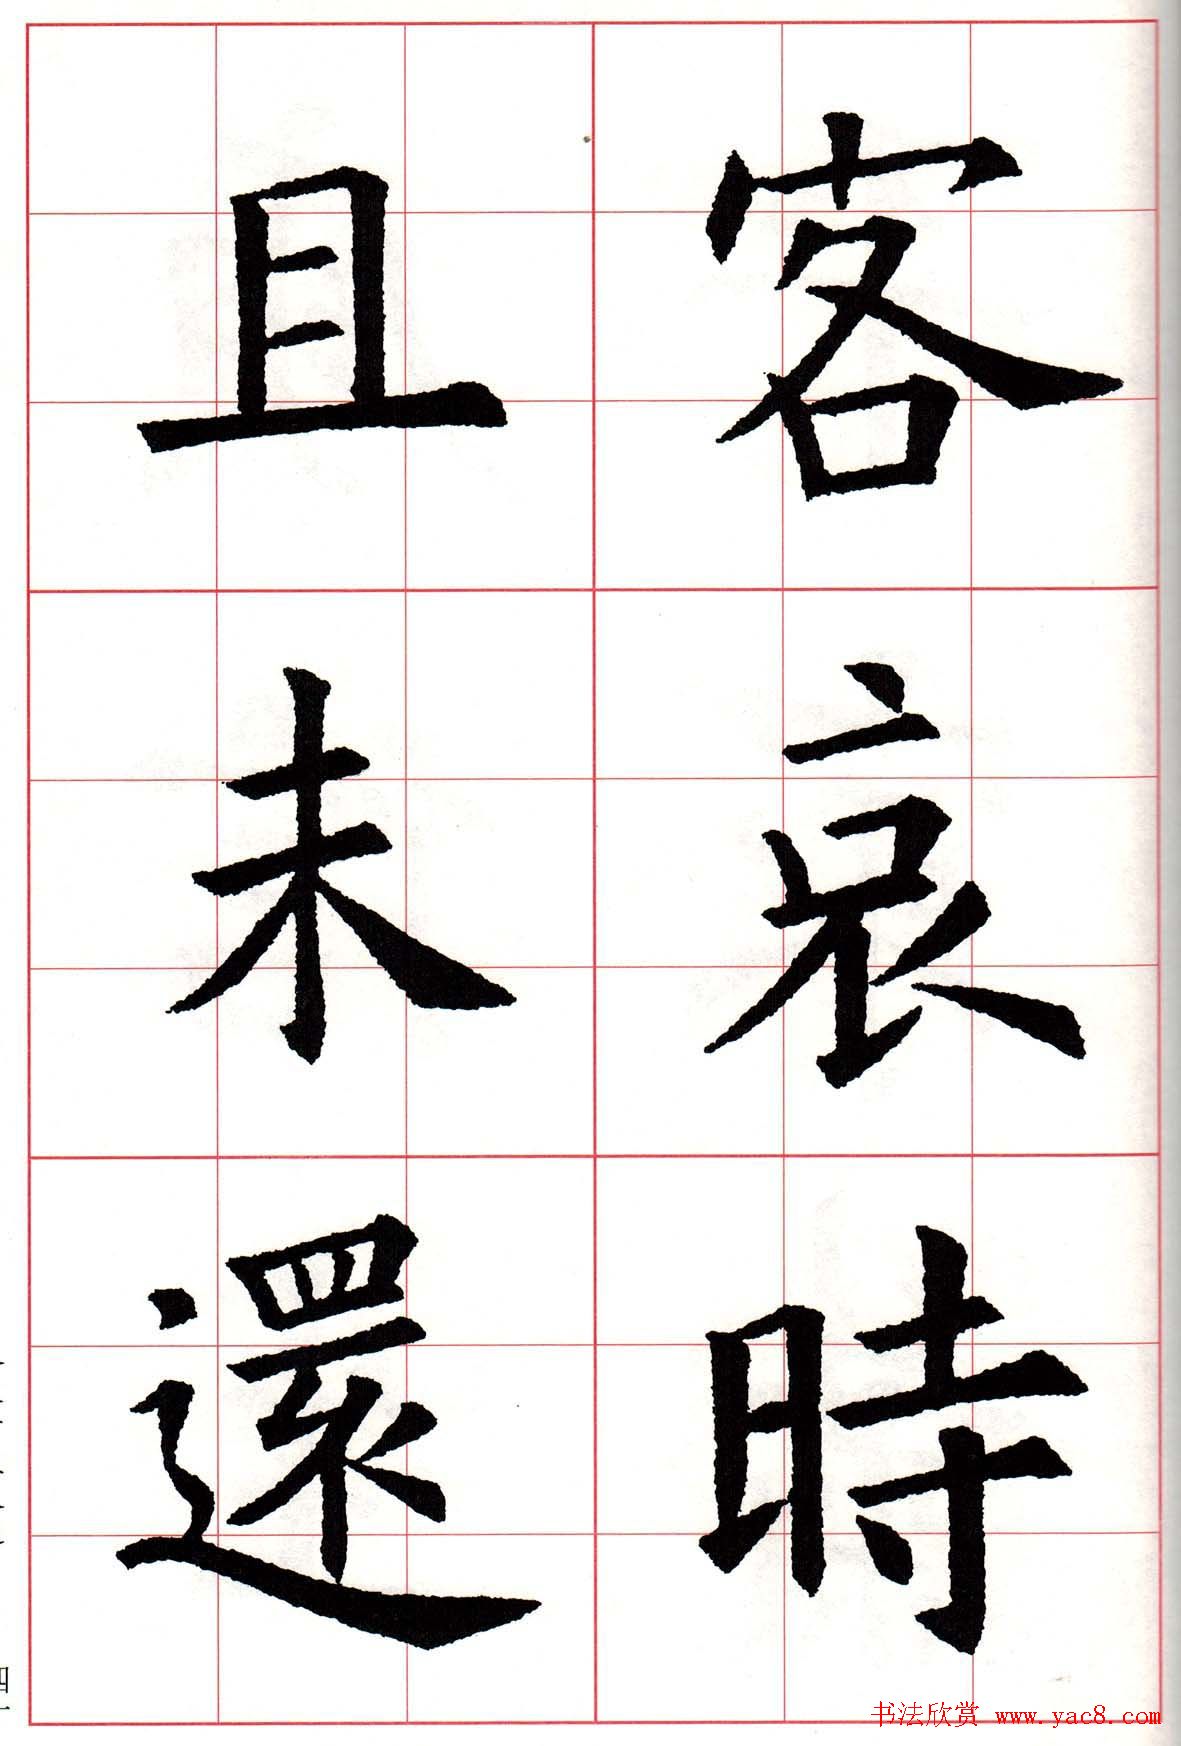 客哀時
且未還
书法欣赏 www.yac8.com